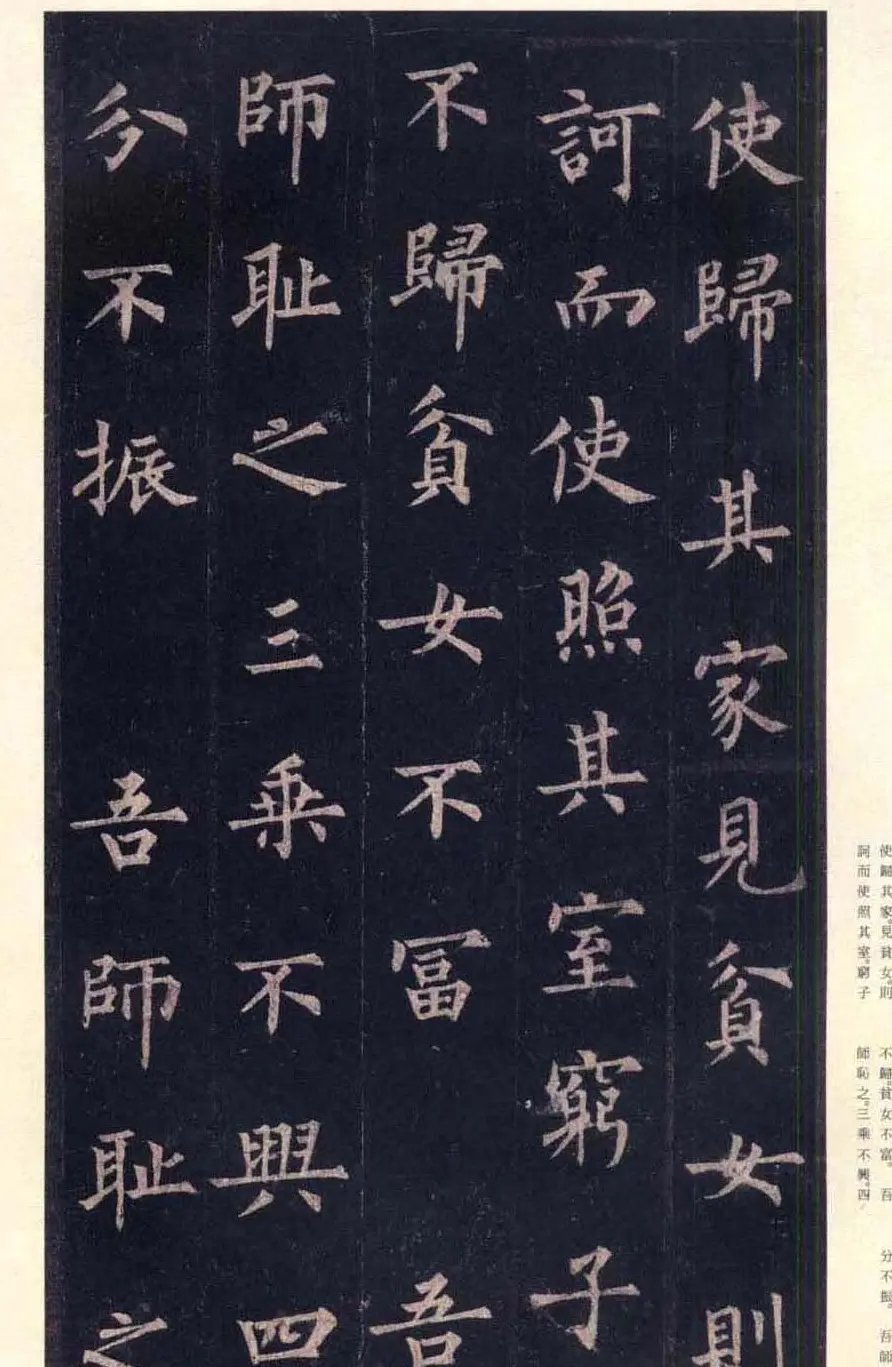 使歸其家見貧女則
訶而使照其室窮子
不歸貧女不冨 吾
師耻之三乘不興四
分不振 吾師耻之
使歸其家。見貧女。則
訶而使照其室。窮子
不歸。貧女不富。 吾
師恥之。三乘不興。四
分不振。 吾師